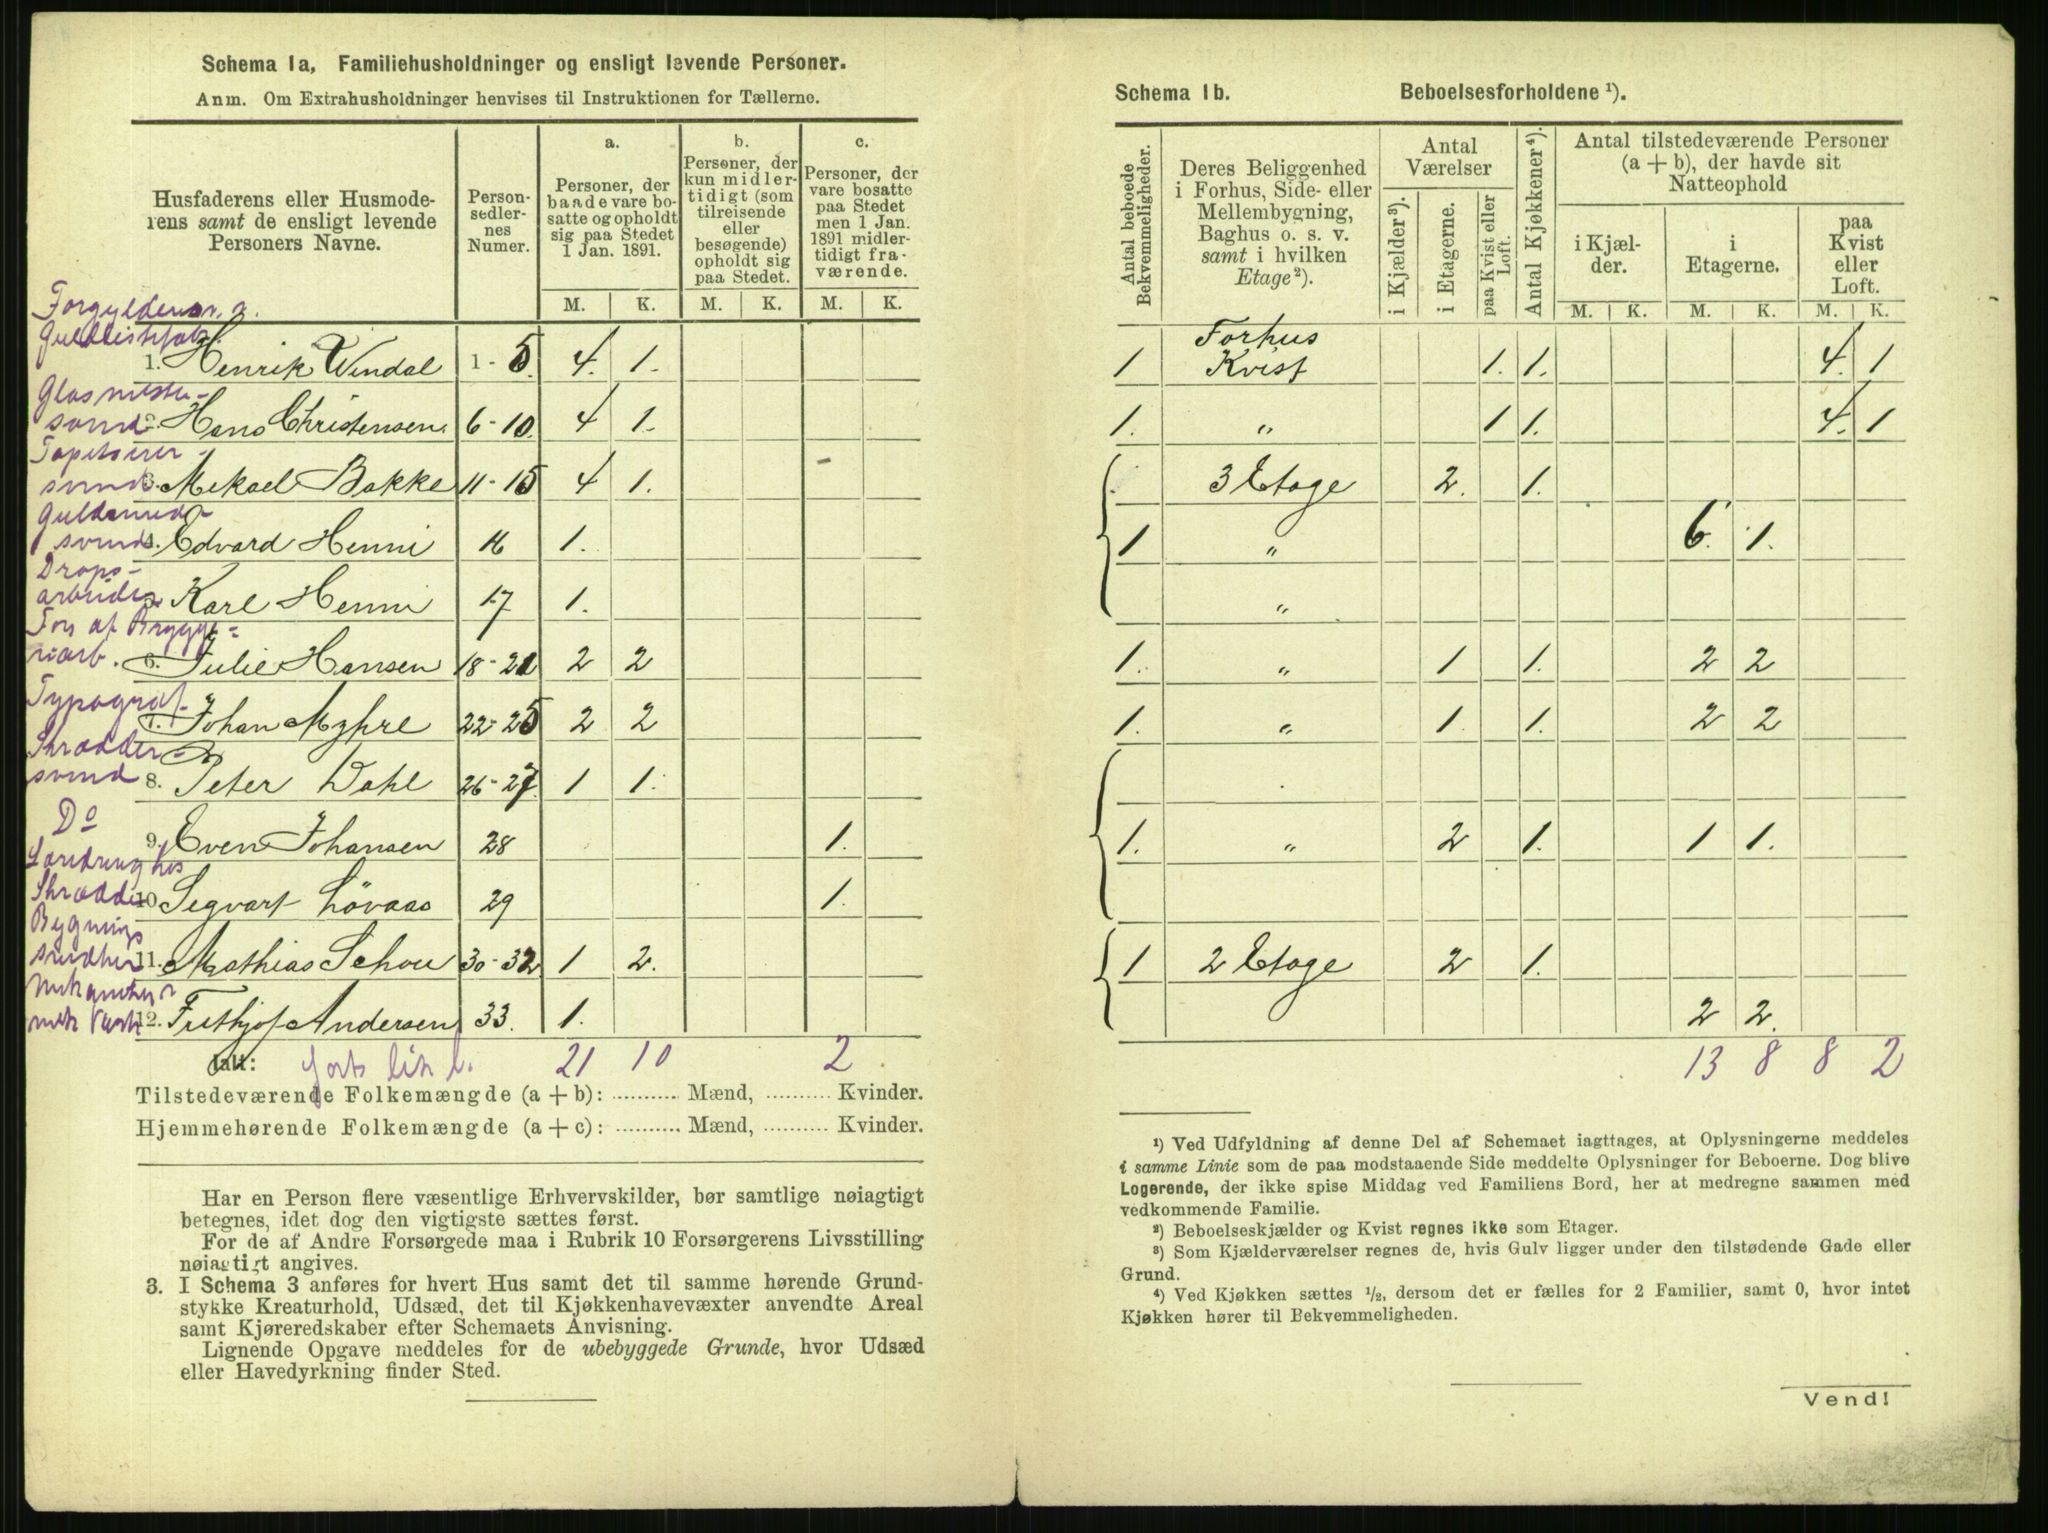 Schema 1a, Familiehusholdninger og ensligt levende Personer.
Anm. Om Extrahusholdninger henvises til Instruktionen for Tællerne.
Husfaderens eller Husmode-
rens samt de ensligt levende
Personers Navne.
Person-
sedler-
nes
Numer.
a.
Personer, der
baade vare bo-
satte og opholdt
sig paa Stedet
1 Jan. 1891.
b.
Personer, der
kun midler-
tidigt (som
tilreisende
eller
besøgende)
opholdt sig
paa Stedet.
c.
Personer, der
vare bosatte
paa Stedet
men 1 Jan.
1891 midler-
tidigt fra-
værende.
M. K. M. K. M. K.
1. Henrik Vindal 1-5. 4. 1.
Glasmester-
svend 2. Hans Christensen. 6-10. 4 1.
Tapetserer-
svend 3. Mekael Bakke 11-15 4 1.
Guldsmed-
svend 4. Edvard Henni 16 1.
Drops-
arbeider 5. Karl Henni 17 1.
Fors af Brygge-
riarb. 6. Julie Hansen 18-21 2 2
Typograf 7. Johan Myhre 22-25 2 2
Skrædder-
svend 8. Peter Dahl 26-27. 1 1.
Do 9. Even Johansen 28 1.
Skrædder 10. Segvart Lövaas 29 1.
Bygnings
11. Mathias Schou 30-32 1 2.
12. Frithjof Andersen 33. 1.
Ialt: 21 10 2
Tilstedeværende Folkemængde (a + b): ........... Mænd, .......... Kvinder.
Hjemmehørende Folkemængde (a + c): .......... Mænd, .......... Kvinder.
Har en Person flere væsentlige Erhvervskilder, bør samtlige nøiagtigt
betegnes, idet dog den vigtigste sættes først.
For de af Andre Forsørgede maa i Rubrik 10 Forsørgerens Livsstilling
nøiagtigt angives.
3. I Schema 3 anføres for hvert Hus samt det til samme hørende Grund-
stykke Kreaturhold, Udsæd, det til Kjøkkenhavevæxter anvendte Areal
samt Kjøreredskaber efter Schemaets Anvisning.
Lignende Opgave meddeles for de ubebyggede Grunde, hvor Udsæd
eller Havedyrkning finder Sted.
Schema 1b. Beboelsesforholdene ¹).
Antal beboede
Bekvemmeligheder.
Deres Beliggenhed
i Forhus, Side- eller
Mellembygning,
Baghus o. s. v.
samt i hvilken
Etage ²).
Antal
Værelser
i Kjælder ³).
i Etagerne.
paa Kvist eller
Loft.
Antal Kjøkkener ⁴).
Antal tilstedeværende Personer
(a + b), der havde sit
Natteophold
i Kjæl-
der.
i
Etagerne.
paa
Kvist
eller
Loft.
M. K. M. K. M. K.
Forhus
1 Kvist 1. 1. 4. 1
1. „ 1 1. 4. 1
3 Etage 2. 1.
1 „ 6. 1.
„
1. „ 1 1. 2 2
1. „ 1. 1. 2 2
1. „ 2 1. 1 1.
1 2 Etage 2 1.
2 2.
13 8 8 2
¹) Ved Udfyldning af denne Del af Schemaet iagttages, at Oplysningerne meddeles
i samme Linie som de paa modstaaende Side meddelte Oplysninger for Beboerne. Dog blive
Logerende, der ikke spise Middag ved Familiens Bord, her at medregne sammen med
vedkommende Familie.
²) Beboelseskjælder og Kvist regnes ikke som Etager.
³) Som Kjælderværelser regnes de, hvis Gulv ligger under den tilstødende Gade eller
Grund.
⁴) Ved Kjøkken sættes ½, dersom det er fælles for 2 Familier, samt 0, hvor intet
Kjøkken hører til Bekvemmeligheden.
Vend!